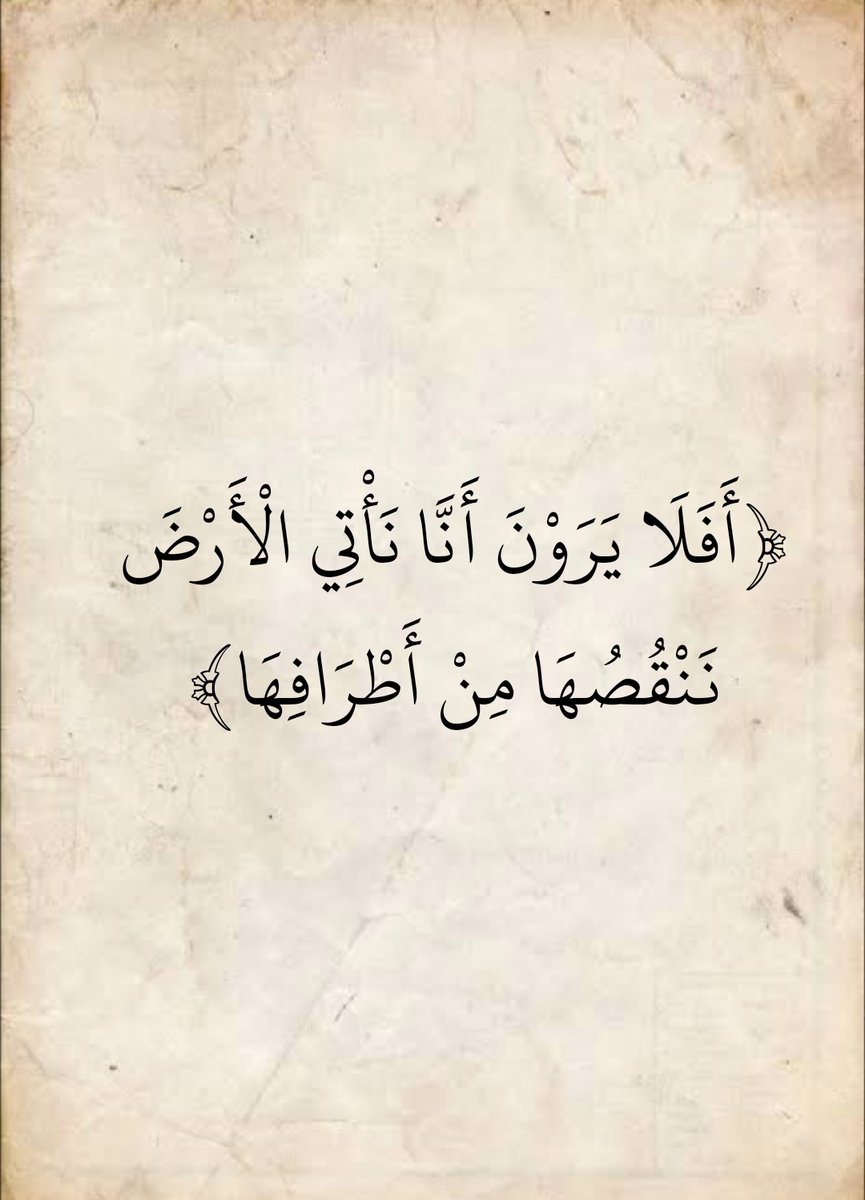 ﴿أَفَلَا يَرَوْنَ أَنَّا نَأْتِي الْأَرْضَ
نَنْقُصُهَا مِنْ أَطْرَافِهَا﴾